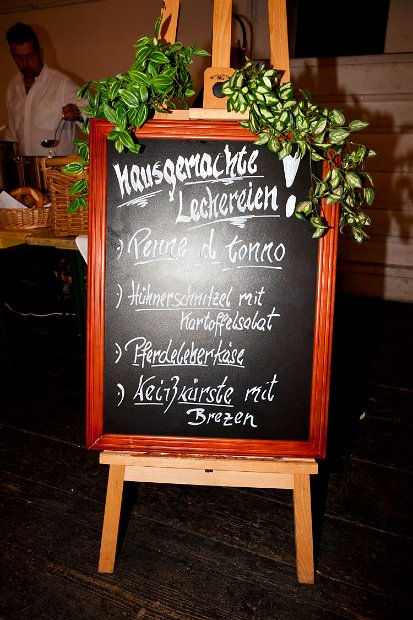 Hausgemachte
Leckereien!
) Penne al tonno
) Hühnerschnitzel mit
Kartoffelsalat
) Pferdeleberkäse
) Weißwürste mit
Brezen